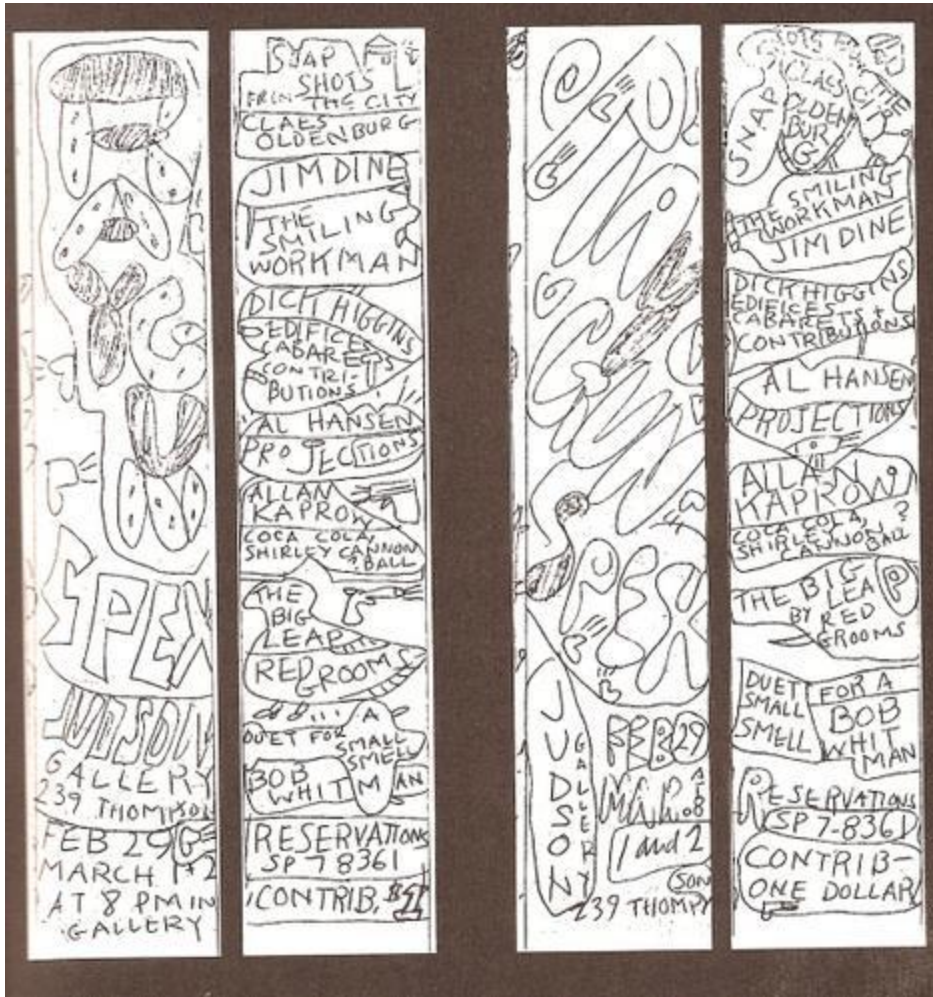 RAY
GUN
SPEX
JUDSON
GALLERY
239 THOMPSON
FEB 29
MARCH 1+2
AT 8 PM IN
GALLERY
SNAP
SHOTS
FROM THE CITY
CLAES
OLDENBURG
JIM DINE
THE
SMILING
WORKMAN
DICK HIGGINS
EDIFICES
CABARETS
CONTRI-
BUTIONS
AL HANSEN
PROJECTIONS
ALLAN
KAPROW
COCA COLA,
SHIRLEY CANNON
BALL ?
THE
BIG
LEAP
RED GROOMS
A
DUET FOR
SMALL
SMELL
BOB
WHITMAN
RESERVATIONS
SP 7 8361
CONTRIB, $1
SPEX
JUDSON
GALLERY
FEB 29
MAR.
AT 8
1 and 2
239 THOMPSON
SNAP
SHOTS
THE
CITY
CLAES
OLDEN
BUR
G
THE SMILING
WORKMAN
JIM DINE
DICK HIGGINS
EDIFICES
CABARETS +
CONTRIBUTIONS
AL HANSEN
PROJECTIONS
ALLAN
KAPROW
COCA COLA, ?
SHIRLEY
CANNON BALL
THE BIG
LEAP
BY RED
GROOMS
DUET
SMALL
SMELL
FOR A
BOB
WHIT
MAN
RESERVATIONS
SP 7-8361
CONTRIB-
ONE DOLLAR